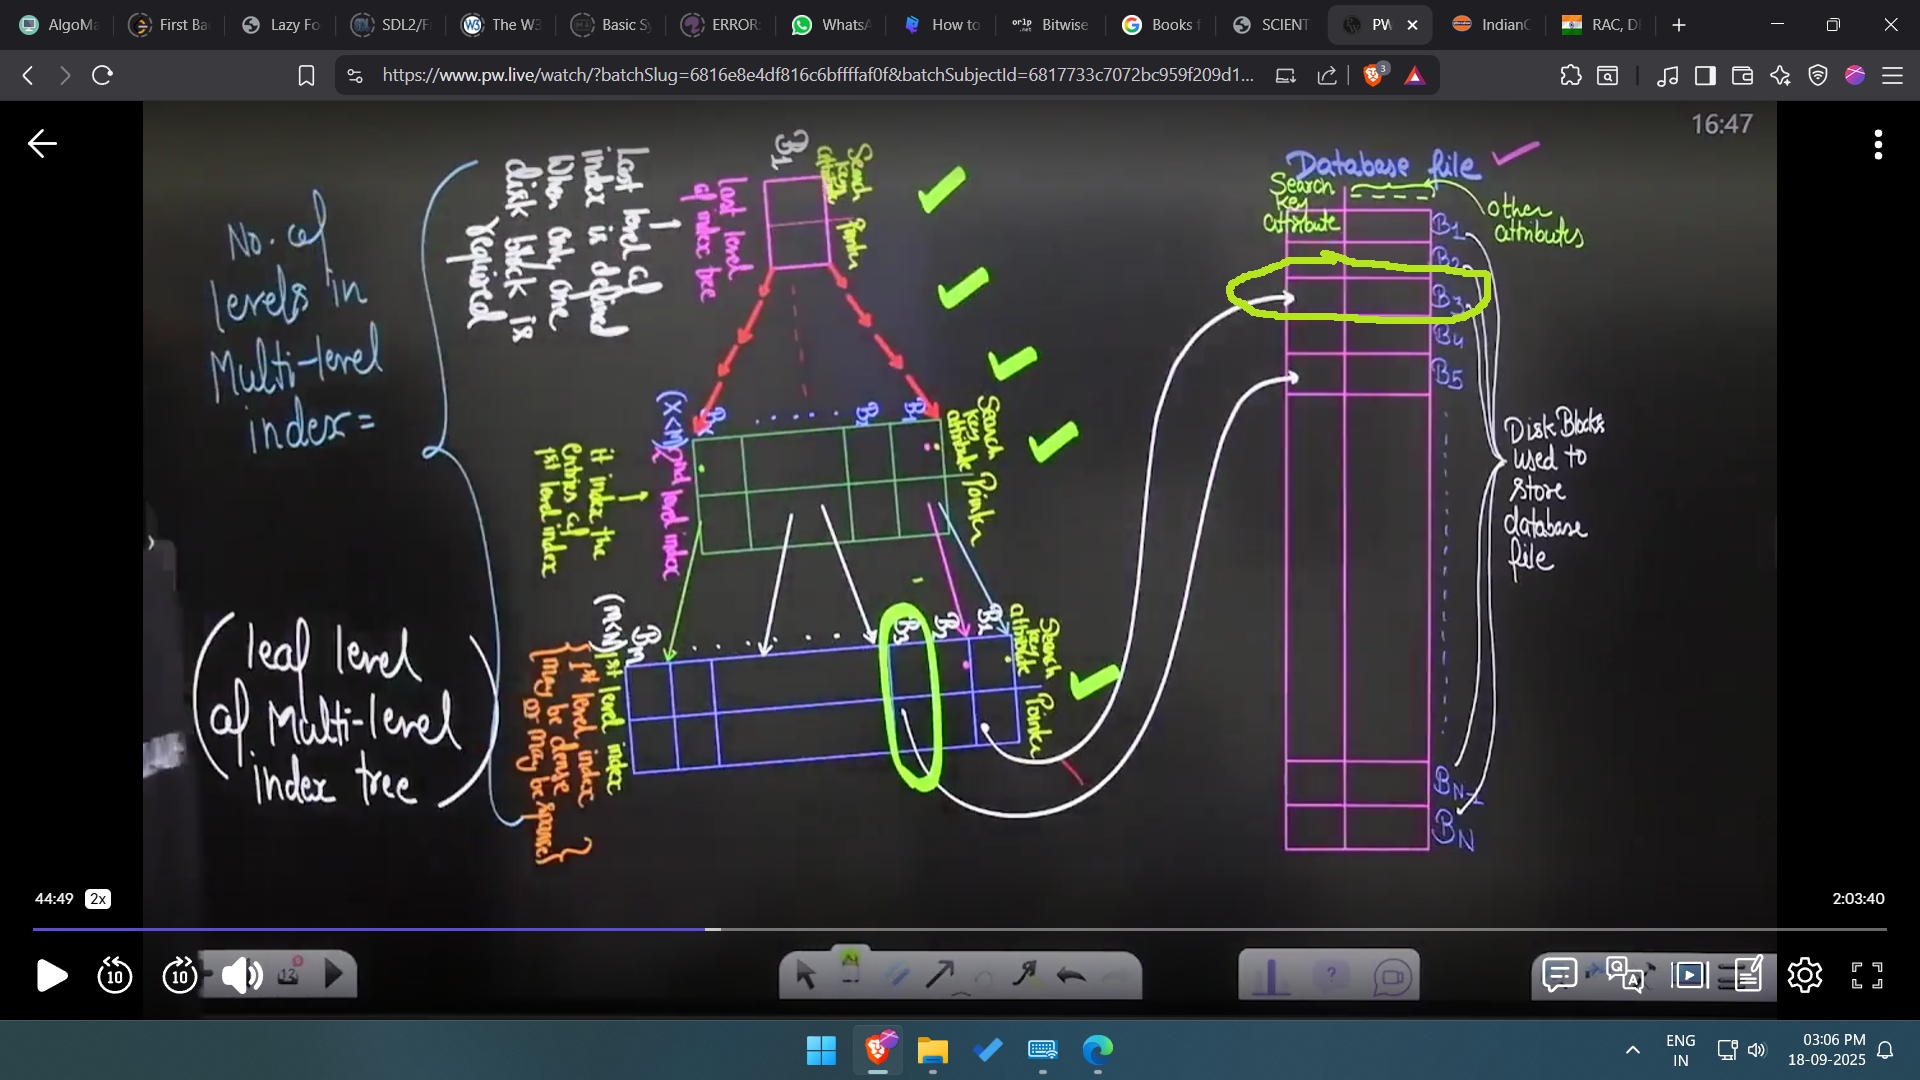 AlgoMa
First Ba
Lazy Fo
SDL2/F
The W3
Basic Sy
ERROR:
WhatsA
How to
orlp .net
Bitwise
Books f
SCIENT
PW
IndianO
RAC, D
https://www.pw.live/watch/?batchSlug=6816e8e4df816c6bffffaf0f&batchSubjectId=6817733c7072bc959f209d1...
3
16:47
No. of
levels in
Multi-level
index =
(leaf level
of Multi-level
index tree)
Last level of
index is defined
when only one
disk block is
required
Last level
of index tree
B1
Search
key
attribute
Pointer
(X<M)
2nd level index
it index the
entries of
1st level index
Bx
. . . . . .
B2
B1
Search
key
attribute
Pointer
(M<N)
1st level index
{1st level index
may be dense
or may be sparse}
BM
. . . . . .
B3
B2
B1
Search
key
attribute
Pointer
Database file
Search
key
attribute
other
attributes
B1
B2
B3
B4
B5
BN-1
BN
Disk Blocks
used to
store
database
file
44:49
2x
2:03:40
10
10
12
ENG
IN
03:06 PM
18-09-2025